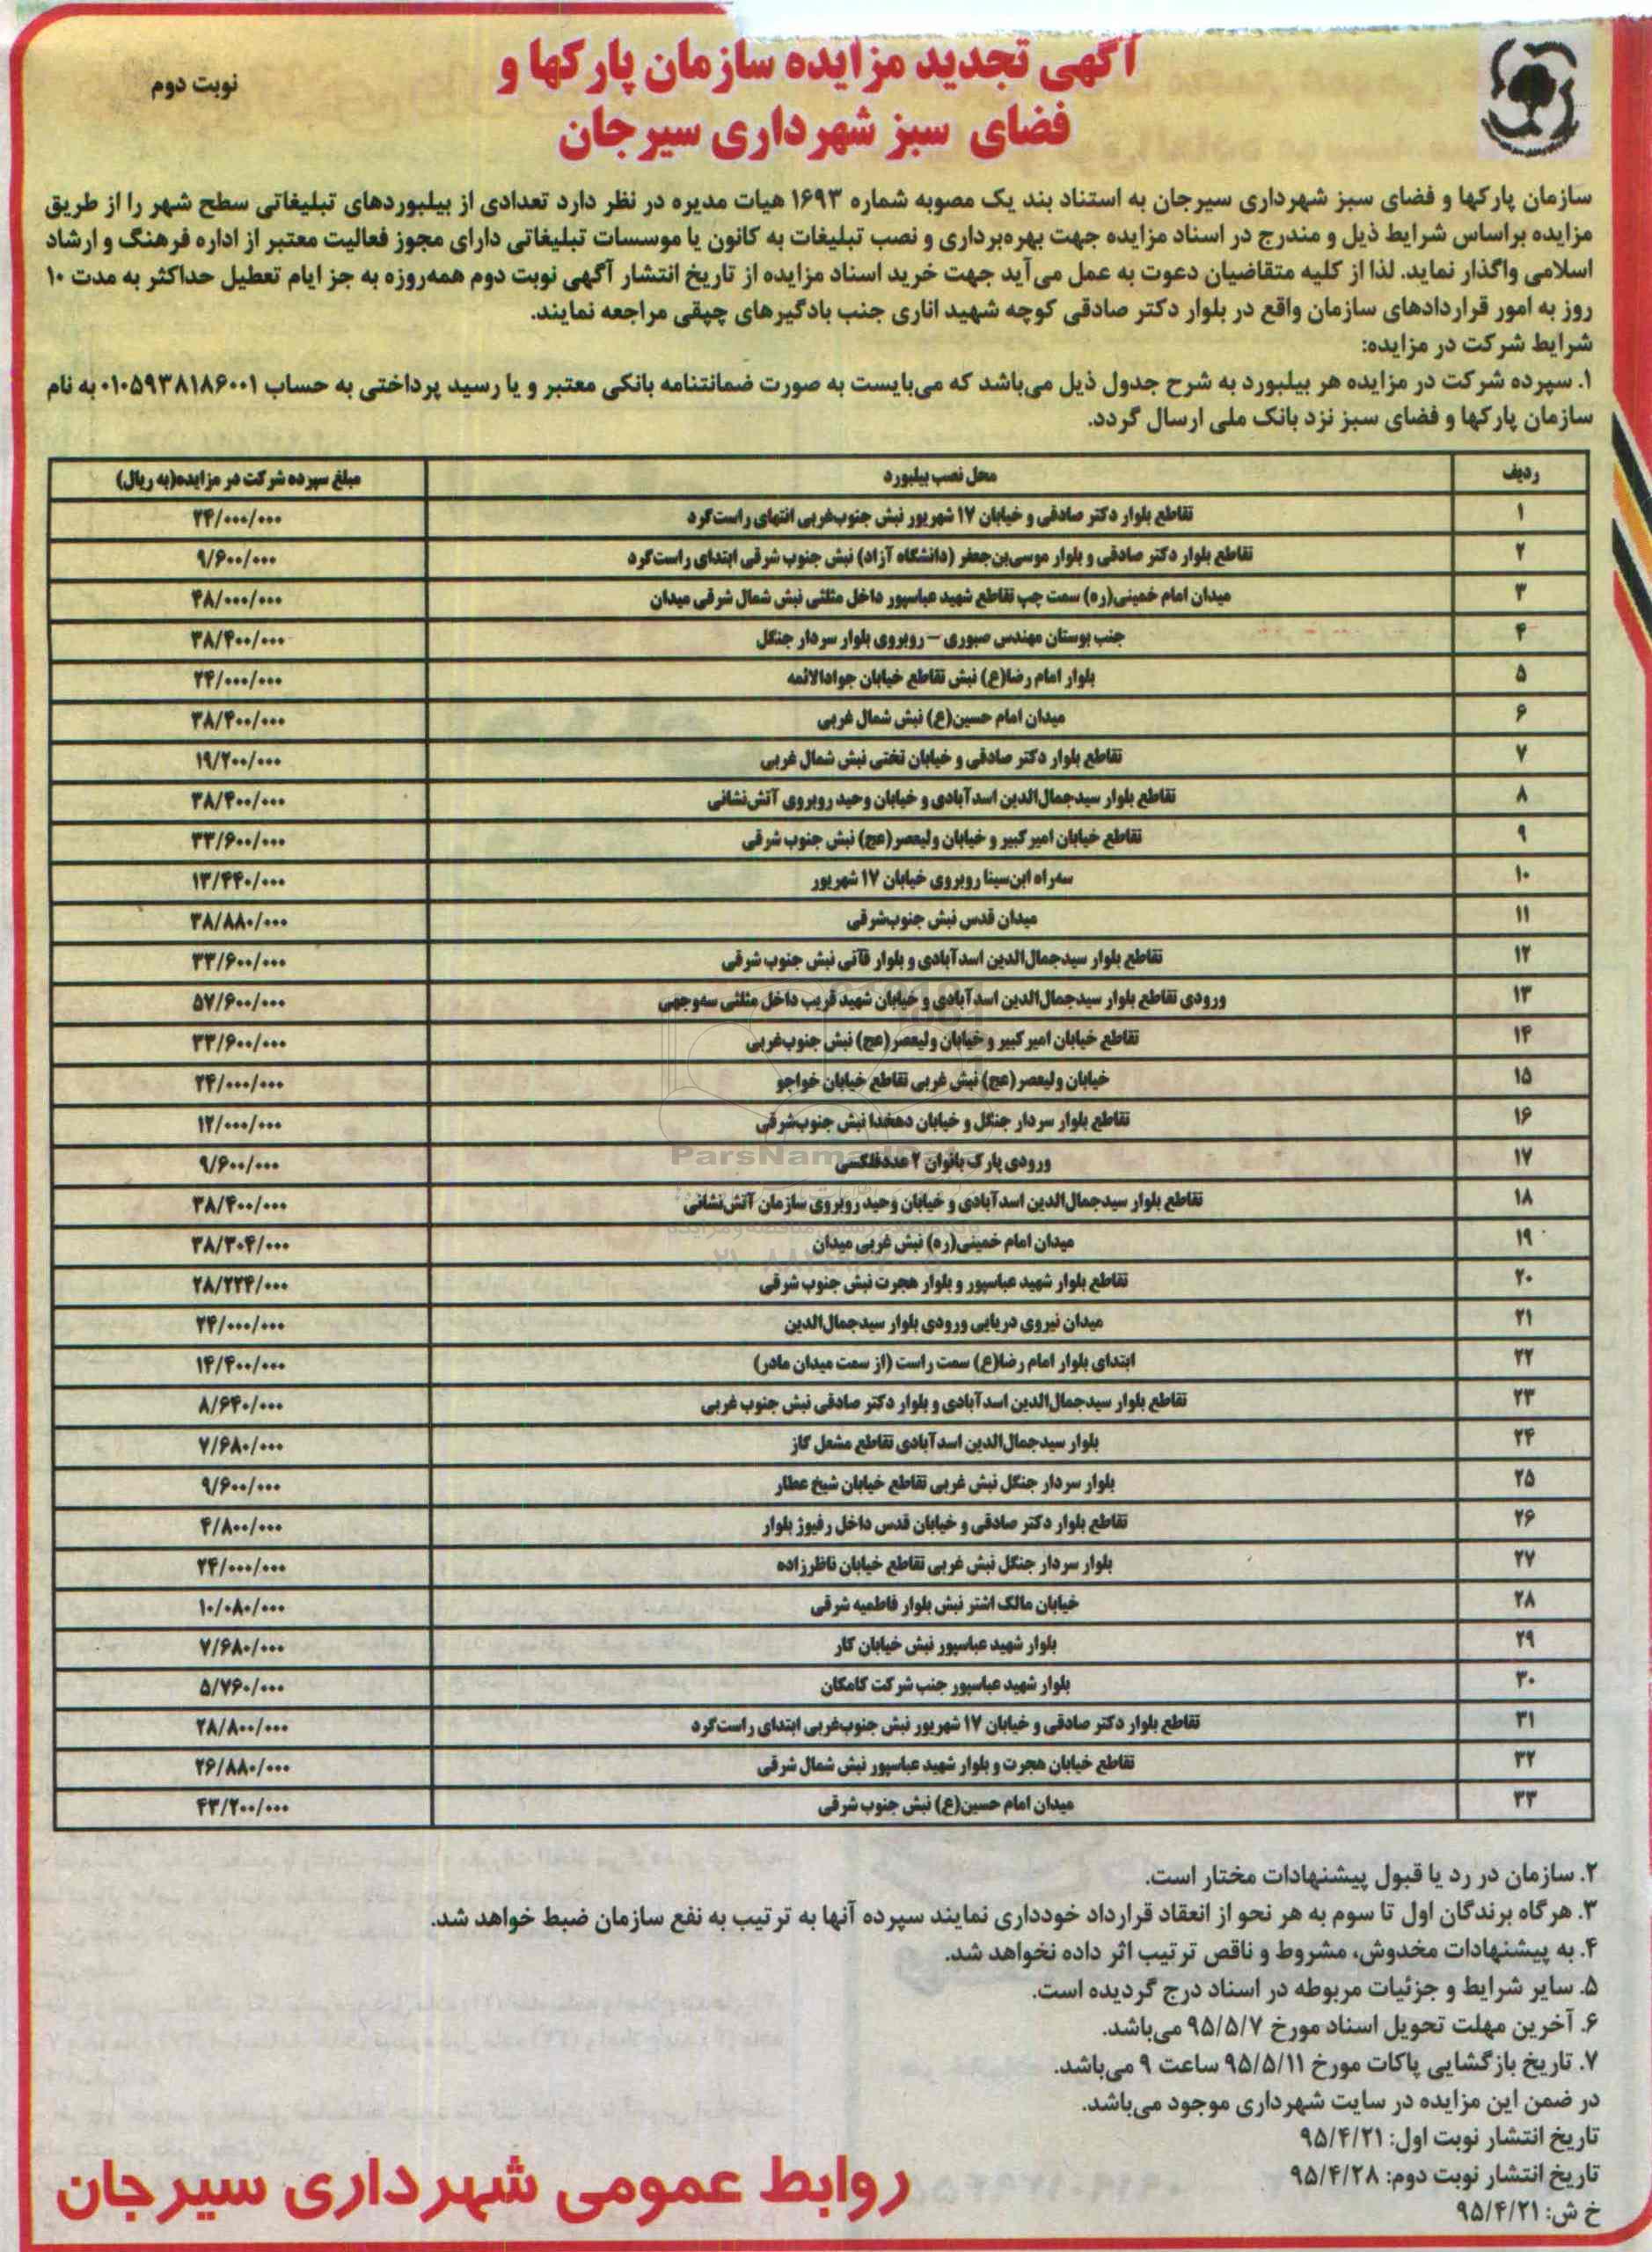 آگهی تجدید مزایده سازمان پارکها و
فضای سبز شهرداری سیرجان
نوبت دوم
سازمان پارکها و فضای سبز شهرداری سیرجان به استناد بند یک مصوبه شماره ۱۶۹۳ هیات مدیره در نظر دارد تعدادی از بیلبوردهای تبلیغاتی سطح شهر را از طریق
مزایده براساس شرایط ذیل و مندرج در اسناد مزایده جهت بهره‌برداری و نصب تبلیغات به کانون یا موسسات تبلیغاتی دارای مجوز فعالیت معتبر از اداره فرهنگ و ارشاد
اسلامی واگذار نماید. لذا از کلیه متقاضیان دعوت به عمل می‌آید جهت خرید اسناد مزایده از تاریخ انتشار آگهی نوبت دوم همه‌روزه به جز ایام تعطیل حداکثر به مدت ۱۰
روز به امور قراردادهای سازمان واقع در بلوار دکتر صادقی کوچه شهید اناری جنب بادگیرهای چپقی مراجعه نمایند.
شرایط شرکت در مزایده:
۱. سپرده شرکت در مزایده هر بیلبورد به شرح جدول ذیل می‌باشد که می‌بایست به صورت ضمانتنامه بانکی معتبر و یا رسید پرداختی به حساب ۰۱۰۵۹۳۸۱۸۶۰۰۱ به نام
سازمان پارکها و فضای سبز نزد بانک ملی ارسال گردد.
ردیف محل نصب بیلبورد مبلغ سپرده شرکت در مزایده(به ریال)
۱ تقاطع بلوار دکتر صادقی و خیابان ۱۷ شهریور نبش جنوب‌غربی انتهای راست‌گرد ۲۴/۰۰۰/۰۰۰
۲ تقاطع بلوار دکتر صادقی و بلوار موسی‌بن‌جعفر (دانشگاه آزاد) نبش جنوب شرقی ابتدای راست‌گرد ۹/۶۰۰/۰۰۰
۳ میدان امام خمینی(ره) سمت چپ تقاطع شهید عباسپور داخل مثلثی نبش شمال شرقی میدان ۴۸/۰۰۰/۰۰۰
۴ جنب بوستان مهندس صبوری – روبروی بلوار سردار جنگل ۳۸/۴۰۰/۰۰۰
۵ بلوار امام رضا(ع) نبش تقاطع خیابان جوادالائمه ۲۴/۰۰۰/۰۰۰
۶ میدان امام حسین(ع) نبش شمال غربی ۳۸/۴۰۰/۰۰۰
۷ تقاطع بلوار دکتر صادقی و خیابان تختی نبش شمال غربی ۱۹/۲۰۰/۰۰۰
۸ تقاطع بلوار سیدجمال‌الدین اسدآبادی و خیابان وحید روبروی آتش‌نشانی ۳۸/۴۰۰/۰۰۰
۹ تقاطع خیابان امیرکبیر و خیابان ولیعصر(عج) نبش جنوب شرقی ۳۳/۶۰۰/۰۰۰
۱۰ سه‌راه ابن‌سینا روبروی خیابان ۱۷ شهریور ۱۳/۴۴۰/۰۰۰
۱۱ میدان قدس نبش جنوب‌شرقی ۳۸/۸۸۰/۰۰۰
۱۲ تقاطع بلوار سیدجمال‌الدین اسدآبادی و بلوار قآنی نبش جنوب شرقی ۳۳/۶۰۰/۰۰۰
۱۳ ورودی تقاطع بلوار سیدجمال‌الدین اسدآبادی و خیابان شهید قریب داخل مثلثی سه‌وجهی ۵۷/۶۰۰/۰۰۰
۱۴ تقاطع خیابان امیرکبیر و خیابان ولیعصر(عج) نبش جنوب‌غربی ۳۳/۶۰۰/۰۰۰
۱۵ خیابان ولیعصر(عج) نبش غربی تقاطع خیابان خواجو ۲۴/۰۰۰/۰۰۰
۱۶ تقاطع بلوار سردار جنگل و خیابان دهخدا نبش جنوب‌شرقی ۱۲/۰۰۰/۰۰۰
۱۷ ورودی پارک بانوان ۲ عدد فلکسی ۹/۶۰۰/۰۰۰
۱۸ تقاطع بلوار سیدجمال‌الدین اسدآبادی و خیابان وحید روبروی سازمان آتش‌نشانی ۳۸/۴۰۰/۰۰۰
۱۹ میدان امام خمینی(ره) نبش غربی میدان ۳۸/۳۰۴/۰۰۰
۲۰ تقاطع بلوار شهید عباسپور و بلوار هجرت نبش جنوب شرقی ۲۸/۲۲۴/۰۰۰
۲۱ میدان نیروی دریایی ورودی بلوار سیدجمال‌الدین ۲۴/۰۰۰/۰۰۰
۲۲ ابتدای بلوار امام رضا(ع) سمت راست (از سمت میدان مادر) ۱۴/۴۰۰/۰۰۰
۲۳ تقاطع بلوار سیدجمال‌الدین اسدآبادی و بلوار دکتر صادقی نبش جنوب غربی ۸/۶۴۰/۰۰۰
۲۴ بلوار سیدجمال‌الدین اسدآبادی تقاطع مشعل گاز ۷/۶۸۰/۰۰۰
۲۵ بلوار سردار جنگل نبش غربی تقاطع خیابان شیخ عطار ۹/۶۰۰/۰۰۰
۲۶ تقاطع بلوار دکتر صادقی و خیابان قدس داخل رفیوژ بلوار ۴/۸۰۰/۰۰۰
۲۷ بلوار سردار جنگل نبش غربی تقاطع خیابان ناظرزاده ۲۴/۰۰۰/۰۰۰
۲۸ خیابان مالک اشتر نبش بلوار فاطمیه شرقی ۱۰/۰۸۰/۰۰۰
۲۹ بلوار شهید عباسپور نبش خیابان کار ۷/۶۸۰/۰۰۰
۳۰ بلوار شهید عباسپور جنب شرکت کامکان ۵/۷۶۰/۰۰۰
۳۱ تقاطع بلوار دکتر صادقی و خیابان ۱۷ شهریور نبش جنوب‌غربی ابتدای راست‌گرد ۲۸/۸۰۰/۰۰۰
۳۲ تقاطع خیابان هجرت و بلوار شهید عباسپور نبش شمال شرقی ۲۶/۸۸۰/۰۰۰
۳۳ میدان امام حسین(ع) نبش جنوب شرقی ۴۳/۲۰۰/۰۰۰
۲. سازمان در رد یا قبول پیشنهادات مختار است.
۳. هرگاه برندگان اول تا سوم به هر نحو از انعقاد قرارداد خودداری نمایند سپرده آنها به ترتیب به نفع سازمان ضبط خواهد شد.
۴. به پیشنهادات مخدوش، مشروط و ناقص ترتیب اثر داده نخواهد شد.
۵. سایر شرایط و جزئیات مربوطه در اسناد درج گردیده است.
۶. آخرین مهلت تحویل اسناد مورخ ۹۵/۵/۷ می‌باشد.
۷. تاریخ بازگشایی پاکات مورخ ۹۵/۵/۱۱ ساعت ۹ می‌باشد.
در ضمن این مزایده در سایت شهرداری موجود می‌باشد.
تاریخ انتشار نوبت اول: ۹۵/۴/۲۱
تاریخ انتشار نوبت دوم: ۹۵/۴/۲۸
خ ش: ۹۵/۴/۲۱
روابط عمومی شهرداری سیرجان